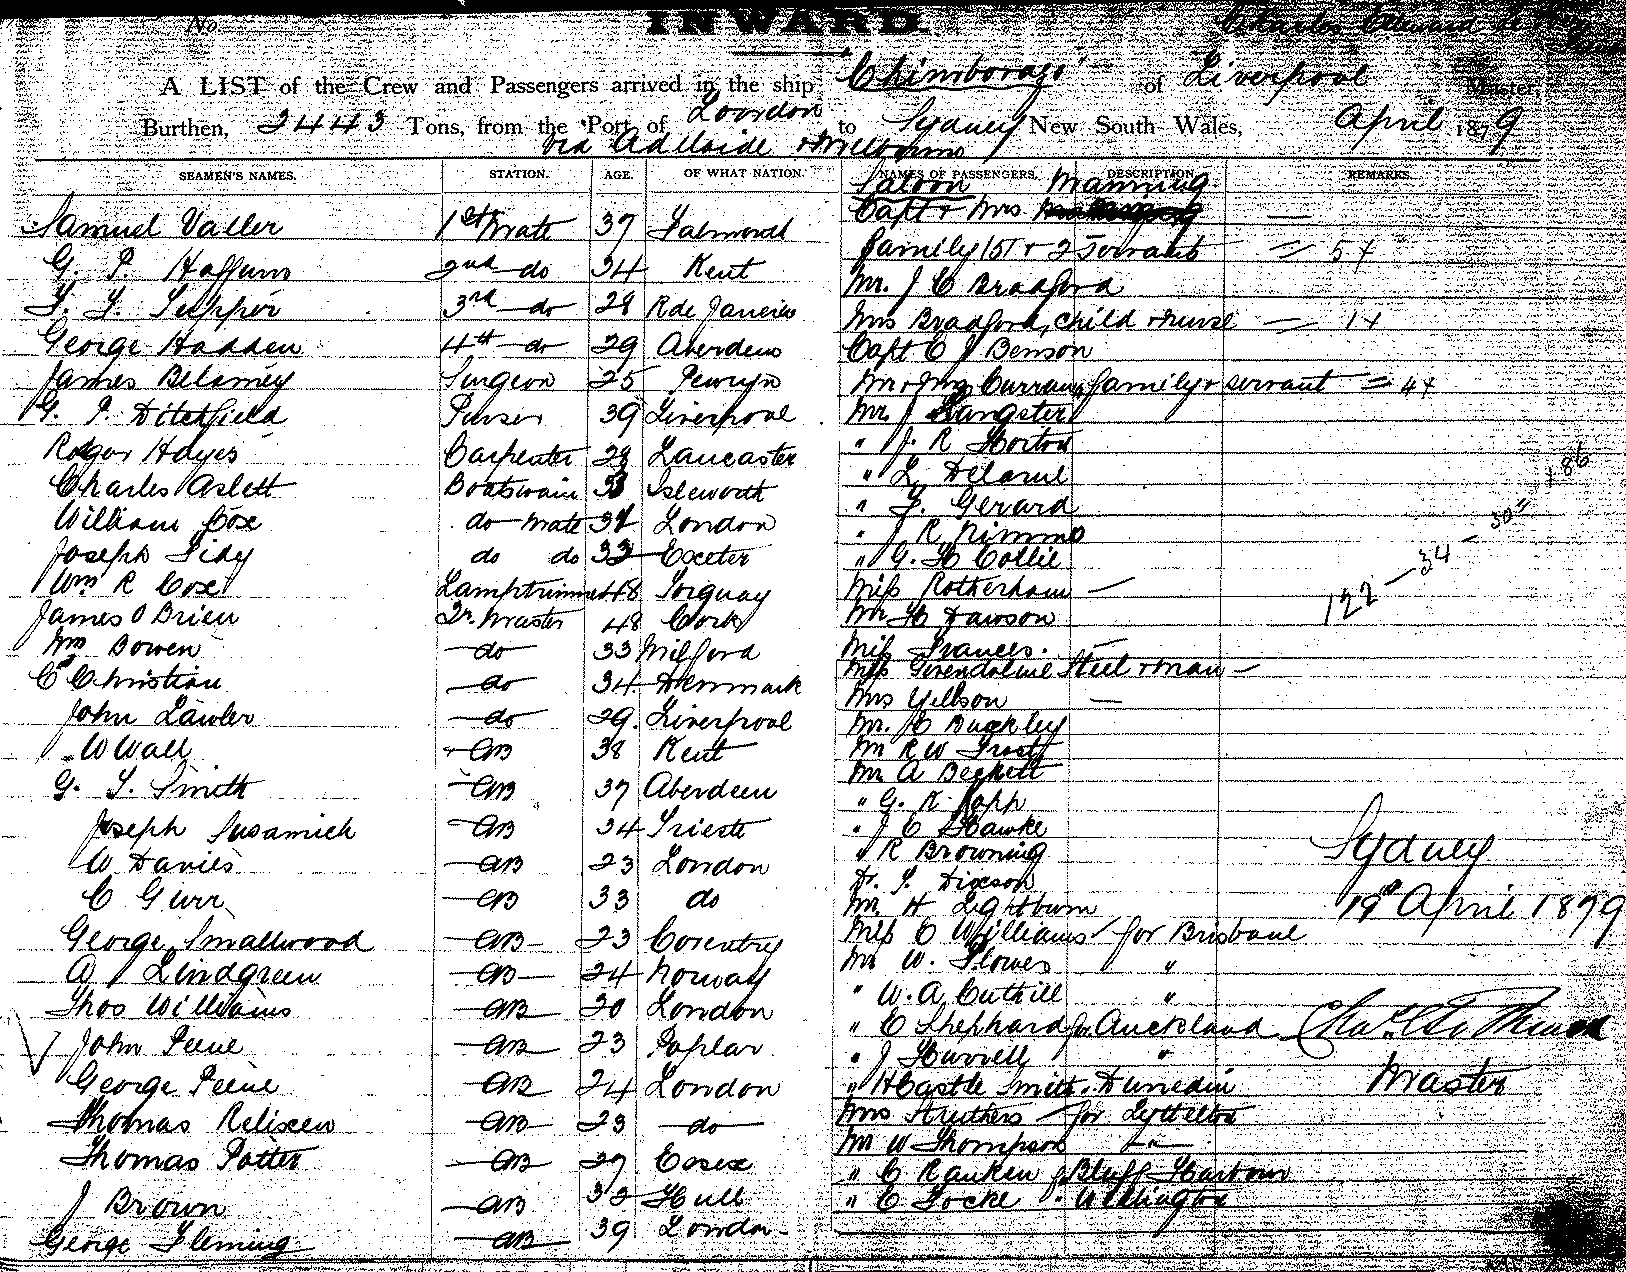 No
INWARD.
A LIST of the Crew and Passengers arrived in the ship "Chimborazo" of Liverpool Master,
Burthen, 2443 Tons, from the Port of London to Sydney New South Wales, April 1879
via Adelaide & Melbourne
SEAMEN'S NAMES. STATION. AGE. OF WHAT NATION. NAMES OF PASSENGERS. DESCRIPTION. REMARKS.
Saloon Manning
Samuel Valler 1st Mate 37 Falmouth Capt & Mrs
family (5) & 2 Servants 5+
G. P. 2nd do 34 Kent Mr. J C Bradford
3rd do 28 R de Janeiro Mrs Bradford, child & nurse 1+
George Hadden 4th do 29 Aberdeen Capt C J Benson
James Belamey Surgeon 25 Penryn Mr & Mrs Curran family & servant 4+
G. P. Ditchfield Purser 39 Liverpool Mr. J Langster
Rodger Hayes Carpenter 28 Lancaster " J. R Horton
Charles Aslett Boatswain Isleworth " L
William Cox do mate London " F. Gerard
Joseph Tidy do do 33 Exeter " J R Nimmo
" G. H Collie
Wm R Cox Lamptrimmer 48 Torquay Miss Rotherham
James O Brien Qr. Master 48 Cork Mr H Dawson
Wm Bowen do 33 Milford Miss Frances.
C Christian do 34 Denmark Miss Gwendoline Steel & man
Mrs Yellson
John Lawler do 29 Liverpool Mr. C Buckley
W Wall AB 38 Kent Mr R W
Mr A Beckett
G. T. Smith AB 37 Aberdeen " G. R Kopp
Joseph Susanich AB 34 Trieste " J C Hawke
W Davies AB 23 London " R Browning
Dr. T. Dixson
C Gurr AB 33 do Mr. H Lightburn
George Smallwood AB 23 Coventry Miss C Williams for Brisbane
A Lindgreen AB 24 Norway Mr W. Flowes "
Thos Williams AB 20 London " W. A. Cuthill "
John Peene AB 23 Poplar " E Shephard for Auckland
" J Hurrell "
George Peene AB 24 London " H Castle Smith. Dunedin
Thomas Relixen AB 23 do Mrs Struthers for Lyttelton
Mr W Thompson "
Thomas Potter AB 27 Essex " C Ranken f Bluff Harbour
J Brown AB 33 Hull " E Locke " Wellington
George Fleming AB 39 London
122 — 34 — 30 = +86
Sydney
19th April 1879
Master